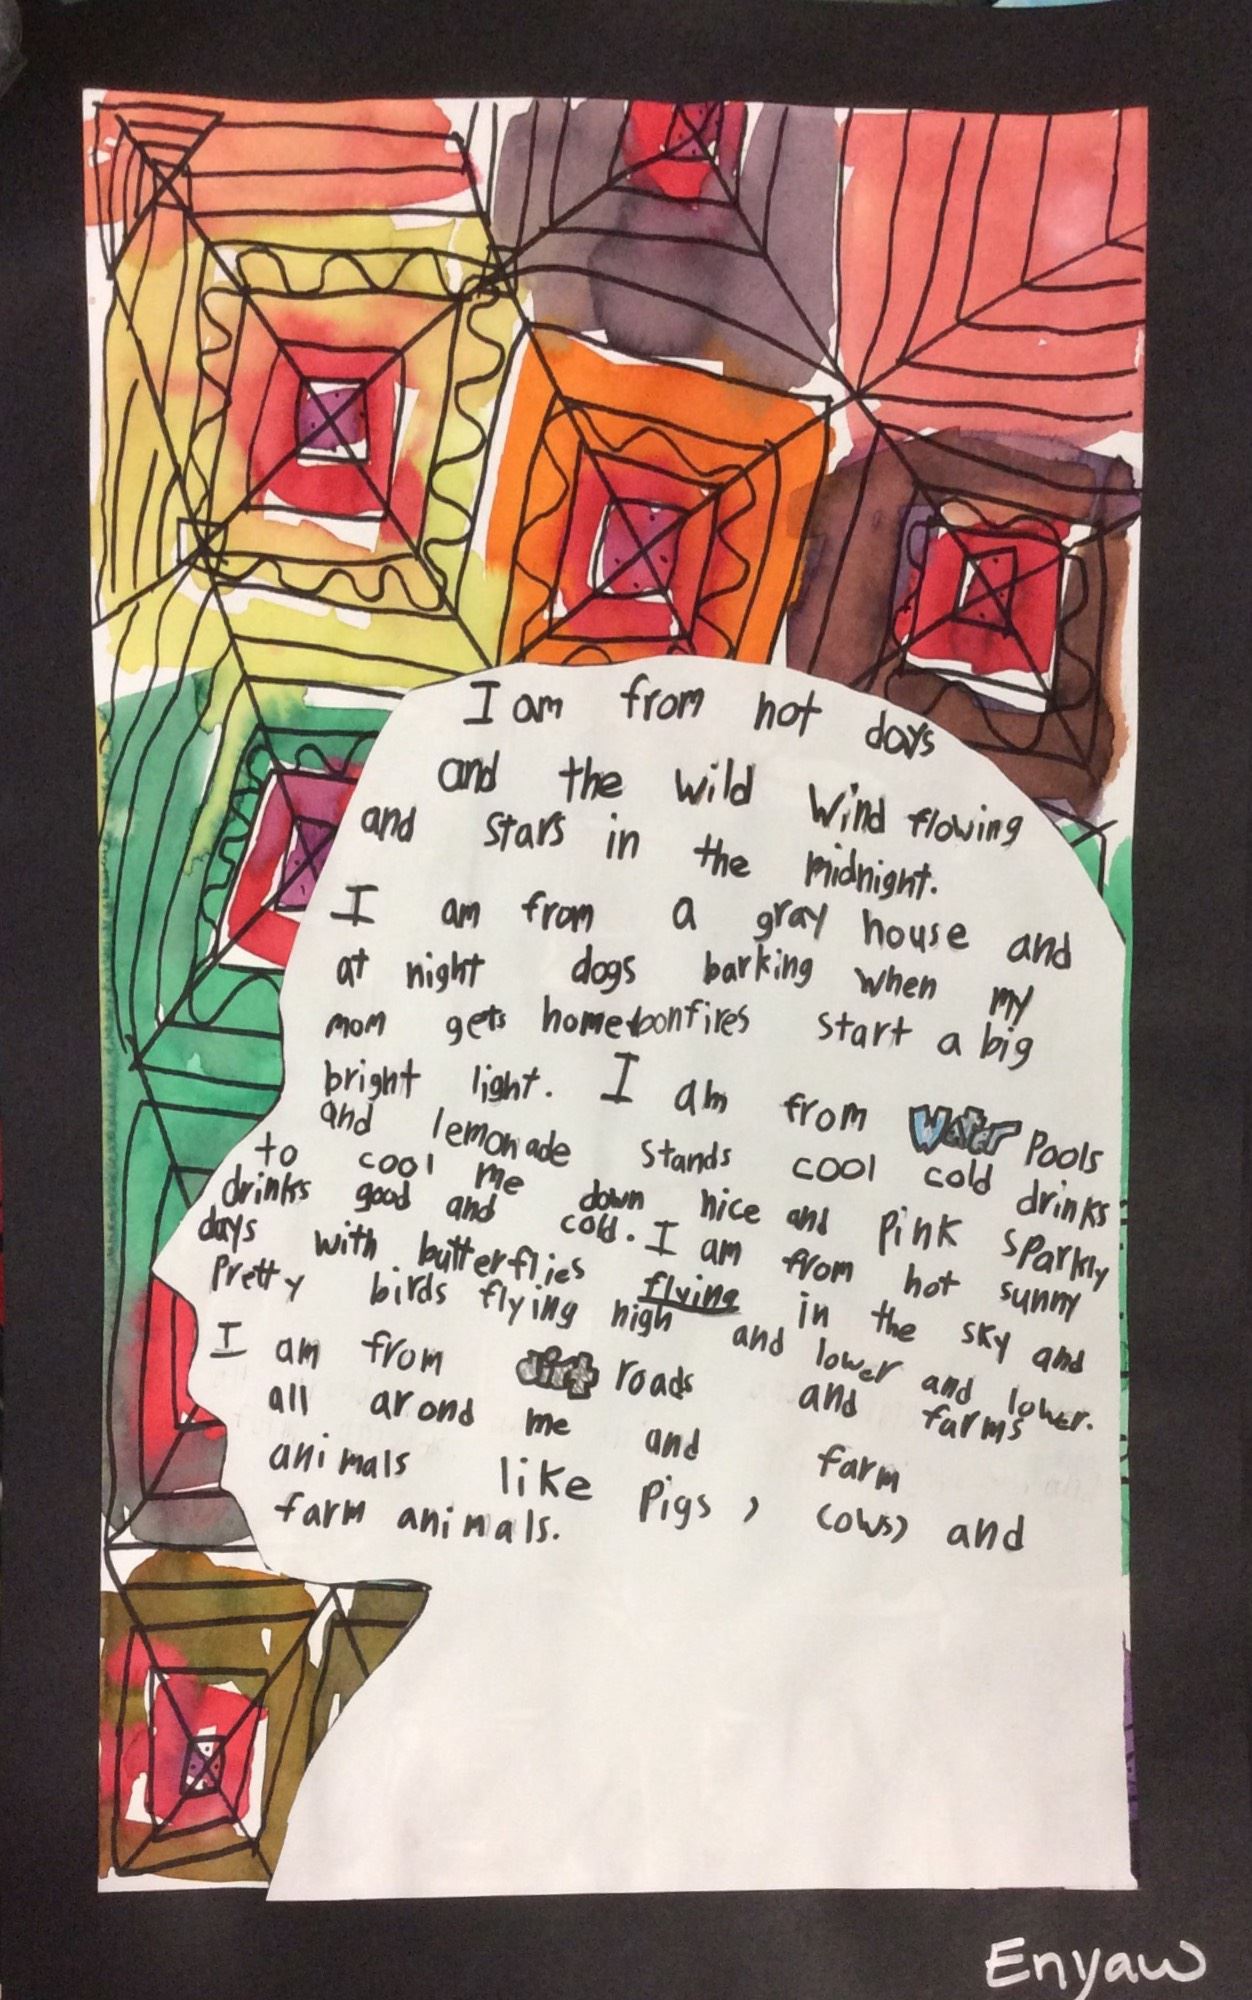 I am from hot days
and the wild wind flowing
and stars in the midnight.
I am from a gray house and
at night dogs barking when my
mom gets home+bonfires start a big
bright light. I am from water Pools
and lemonade stands cool cold drinks
to cool me down nice and pink sparkly
drinks good and cold. I am from hot sunny
days with butterflies flying in the sky and
Pretty birds flying high and lower and lower.
I am from dirt roads and farms
all arond me and farm
animals like Pigs, cows, and
farm animals.
Enyaw